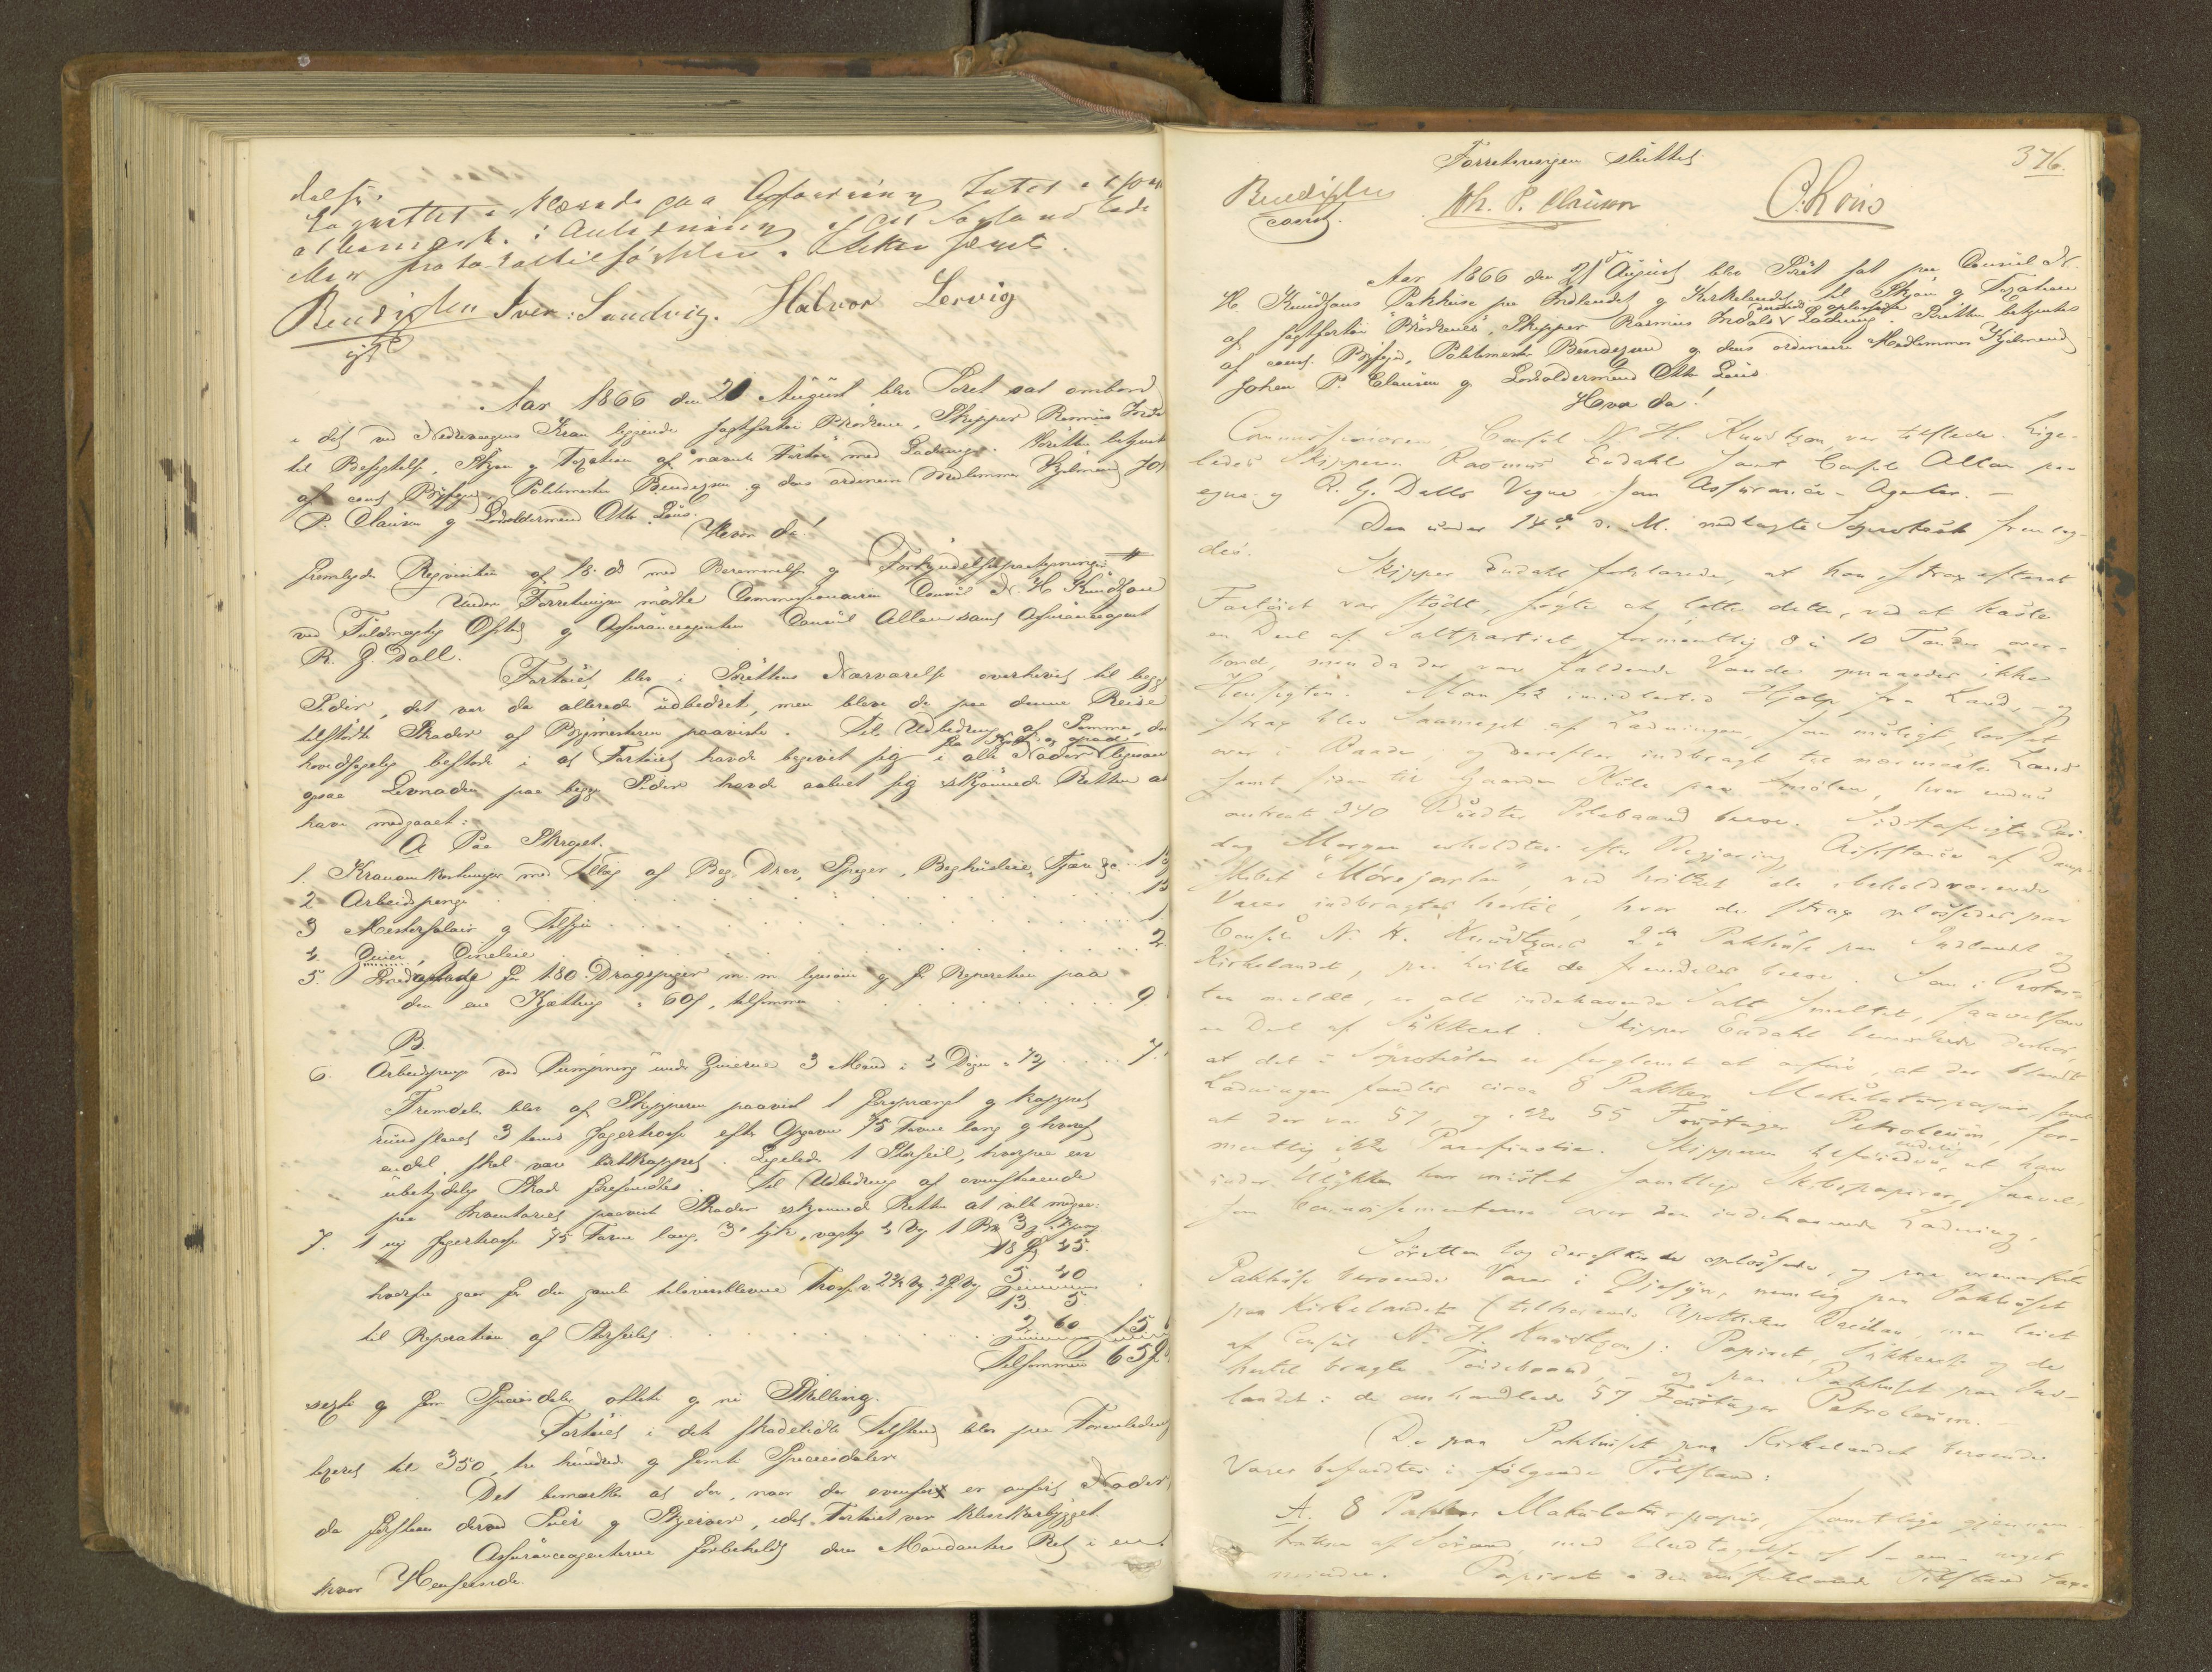 delse.
Iver: Sandvig. Halvor Lervig
Aar 1866 den 21 August blev Soret sat ombord
i det ved Nedrevaagens Kran liggende Jagtfartøi Brødrene, Skipper Rasmus
til Besigtelse, Skjøn og Taxation af nævnte Fartøi med Ladning. Søretten betjent
af const Byfoged, Politimester Bendixen og dens ordinaire Medlemmer Kjøbmand Joh
P. Clausen og Lodsoldermand Otto Løus.
Hvor da!
fremlagdes Reqvisition af 18 ds med Berammelse og Forkyndelsespaategning.
Under Forretningen mødte Commissionairen Consul N. H. Knudtzon
ved Fuldmægtig og Assuranceagenten Consul Allan samt Assuranceagent
R. G. Dall.
Fartøiet blev i Søretten Nærværelse overhivet til begge
Sider, det var da allerede udbedret, men bleve de paa denne Reise
tilstødte Skader af Bygmesteren paaviste. Til Udbedring af Samme, der
hovedsagelig bestode i at Fartøiet havde begivet sig i alle Nader ligesom
ogsaa paa begge Sider havde aabnet sig skjønnede Retten at
have medgaaet:
A Paa Skroget.
1. med Tillæg af Beg, Drev, Spiger, Tjære &c
2 Arbeidspenge
3 Mestersalair og Tilsyn
5. for 180 Dragspiger m. m. ligesom og for Reperation paa
den ene Kjætting 60s, tilsammen 9
B.
6. Arbeidspenge ved Pumpning under 3 Mand i 2 Døgn 72 7.
Fremdeles blev af Skipperen paavist 1 forsprængt og kappet
rundslaaet 3 toms Jagertrosse efter Opgivende 75 Favne lang og hvoraf
endel skal være bortkappet. Ligeledes 1 Storseil, hvorpaa en
ubetydelig Skade forefandtes. Til Udbedring af ovenstaaende
paa Inventariet paaviste Skader skjønnede Retten at ville medgaa:
7. 1 ny Jagertrosse 75 Favne lang, 3" tyk, vægtig 2 Vog 1 Bpd 3
18 45
hvorfra gaar for den gamle tiloversblevne Trosse 5 40
13 5
til Reperation af Storseilet 2 60 15
Tilsammen 65
sexti og fem Speciedaler otteti og ni Skilling.
Fartøiet i det skadelidte Tilstand blev paa Foranledning
taxeret til 350, tre hundrede og femti Speciesdaler
Det bemærkes at der, naar der ovenfor er anført Nader,
da forstaaes derved Suer og Skjerver, idet Fartøiet var klinkerbygget.
Assuranceagenterne forbeholdt deres Mandanters Ret i en
hver Henseende.
376.
Forretningen sluttet
Bendixen
const.
Joh. P. Clausen
O. Løus
Aar 1866 den 21de August blev Søret sat paa Consul N.
H. Knudtzons Pakhuse paa Indlandet og Kirkelandet til Skjøn og Taxation
af Jagtfartøi "Brødrenes", Skipper Rasmus Indals Ladning. Søretten betjentes
af const. Byfoged, Politimester Bendixen og dens ordinaire Medlemmer Kjøbmand
Johan P. Clausen og Lodsoldermand Otto Løus.
Hvor da!
Commissionæren, Consul N. H. Knudtzon var tilstede. Lige-
ledes Skipperen Rasmus Endahl samt Consul Allan paa
egne og R. G. Dalls Vegne som Assurance-Agenter. —
Den under 14de d. M. modtagte Søprotest fremlag-
des.
Skipper Endahl forklarede, at han strax efterat
Fartøiet var stødt, søgte at lette dette, ved at kaste
en Deel af Saltpartiet, formentlig 8 à 10 Tønder over-
bord, men da der var faldende Vande opnaaedes ikke
Hensigten. Man fik imidlertid Hjælp fra Land, — og
strax blev Saameget af Ladningen, som muligt, losset
over i Baade og derefter indbragt til nærmeste Land
samt siden til Gaarden paa Smølen, hvor endnu
omtrent 340 Bundter Tøndebaand beroe.
dag Morgen erholdtes efter Begjæring Assistance af Damp-
skibet "Mørejarlen", ved hvilket de beholdværende
Varer indbragtes hertil, hvor de strax oplossedes paa
Consul N. H. Knudtzons 2de Pakhuse paa Indlandet og
Kirkelandet, paa hvilke de fremdeles beroe. Som i Protes-
ten meldt, er alt indehavende Salt smeltet, saavelsom
en Deel af Sukkeret. Skipper Endahl bemærkede derhos,
at det i Søprotesten er forglemt at anføre, at der blandt
Ladningen fandtes circa 8 Pakker Makulaturpapir, samt
at der var 57, og ikke 55 Foustager Petroleum, for-
mentlig ikke Parafinolie. Skipperen tilføiede endelig, at han
under Ulykken har mistet samtlige Skibspapirer, saavel-
som Connossementerne over den indehavende Ladning.
Søretten tog derefter de oplossede, og paa ovenanførte
Pakhuse beroende Varer i Øiesyn, nemlig paa Pakhuset
paa Kirkelandet (tilhørende Apotheker men leiet
af Consul N. H. Knudtzon): Papiret, Sukkeret og de
hertil bragte Tøndebaand, — og paa Pakhuset paa Ind-
landet: de omhandlede 57 Foustager Petroleum.
De paa Pakhuset paa Kirkelandet beroende
Varer befandtes i følgende Tilstand:
A. 8 Pakker Makulaturpapir, samtlige gjennem-
trukne af Søvand, med Undtagelse af noget
mindre. Papiret i den Tilstand taxe-